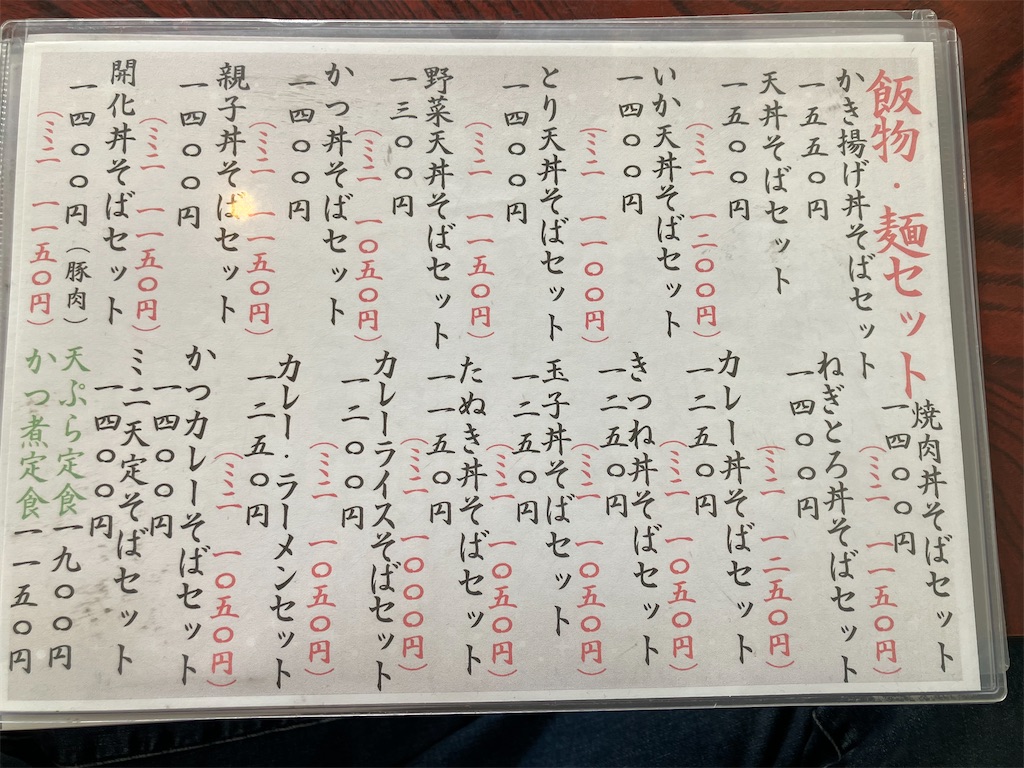 飯物・麺セット
かき揚げ丼そばセット
一五五〇円
天丼そばセット
一五〇〇円
（ミニ 一二〇〇円）
いか天丼そばセット
一四〇〇円
（ミニ 一一〇〇円）
とり天丼そばセット
一四〇〇円
（ミニ 一一五〇円）
野菜天丼そばセット
一三〇〇円
（ミニ 一〇五〇円）
かつ丼そばセット
一四〇〇円
（ミニ 一一五〇円）
親子丼そばセット
一四〇〇円
（ミニ 一一五〇円）
開化丼そばセット
一四〇〇円（豚肉）
（ミニ 一一五〇円）
焼肉丼そばセット
一四〇〇円
（ミニ 一一五〇円）
ねぎとろ丼そばセット
一四〇〇円
（ミニ 一二五〇円）
カレー丼そばセット
一二五〇円
（ミニ 一〇五〇円）
きつね丼そばセット
一二五〇円
（ミニ 一〇五〇円）
玉子丼そばセット
一二五〇円
（ミニ 一〇五〇円）
たぬき丼そばセット
一一五〇円
（ミニ 一〇〇〇円）
カレーライスそばセット
一二〇〇円
（ミニ 一〇五〇円）
カレー・ラーメンセット
一二五〇円
（ミニ 一〇五〇円）
かつカレーそばセット
一四〇〇円
ミニ天定そばセット
一四〇〇円
天ぷら定食 一九〇〇円
かつ煮定食 一一五〇円